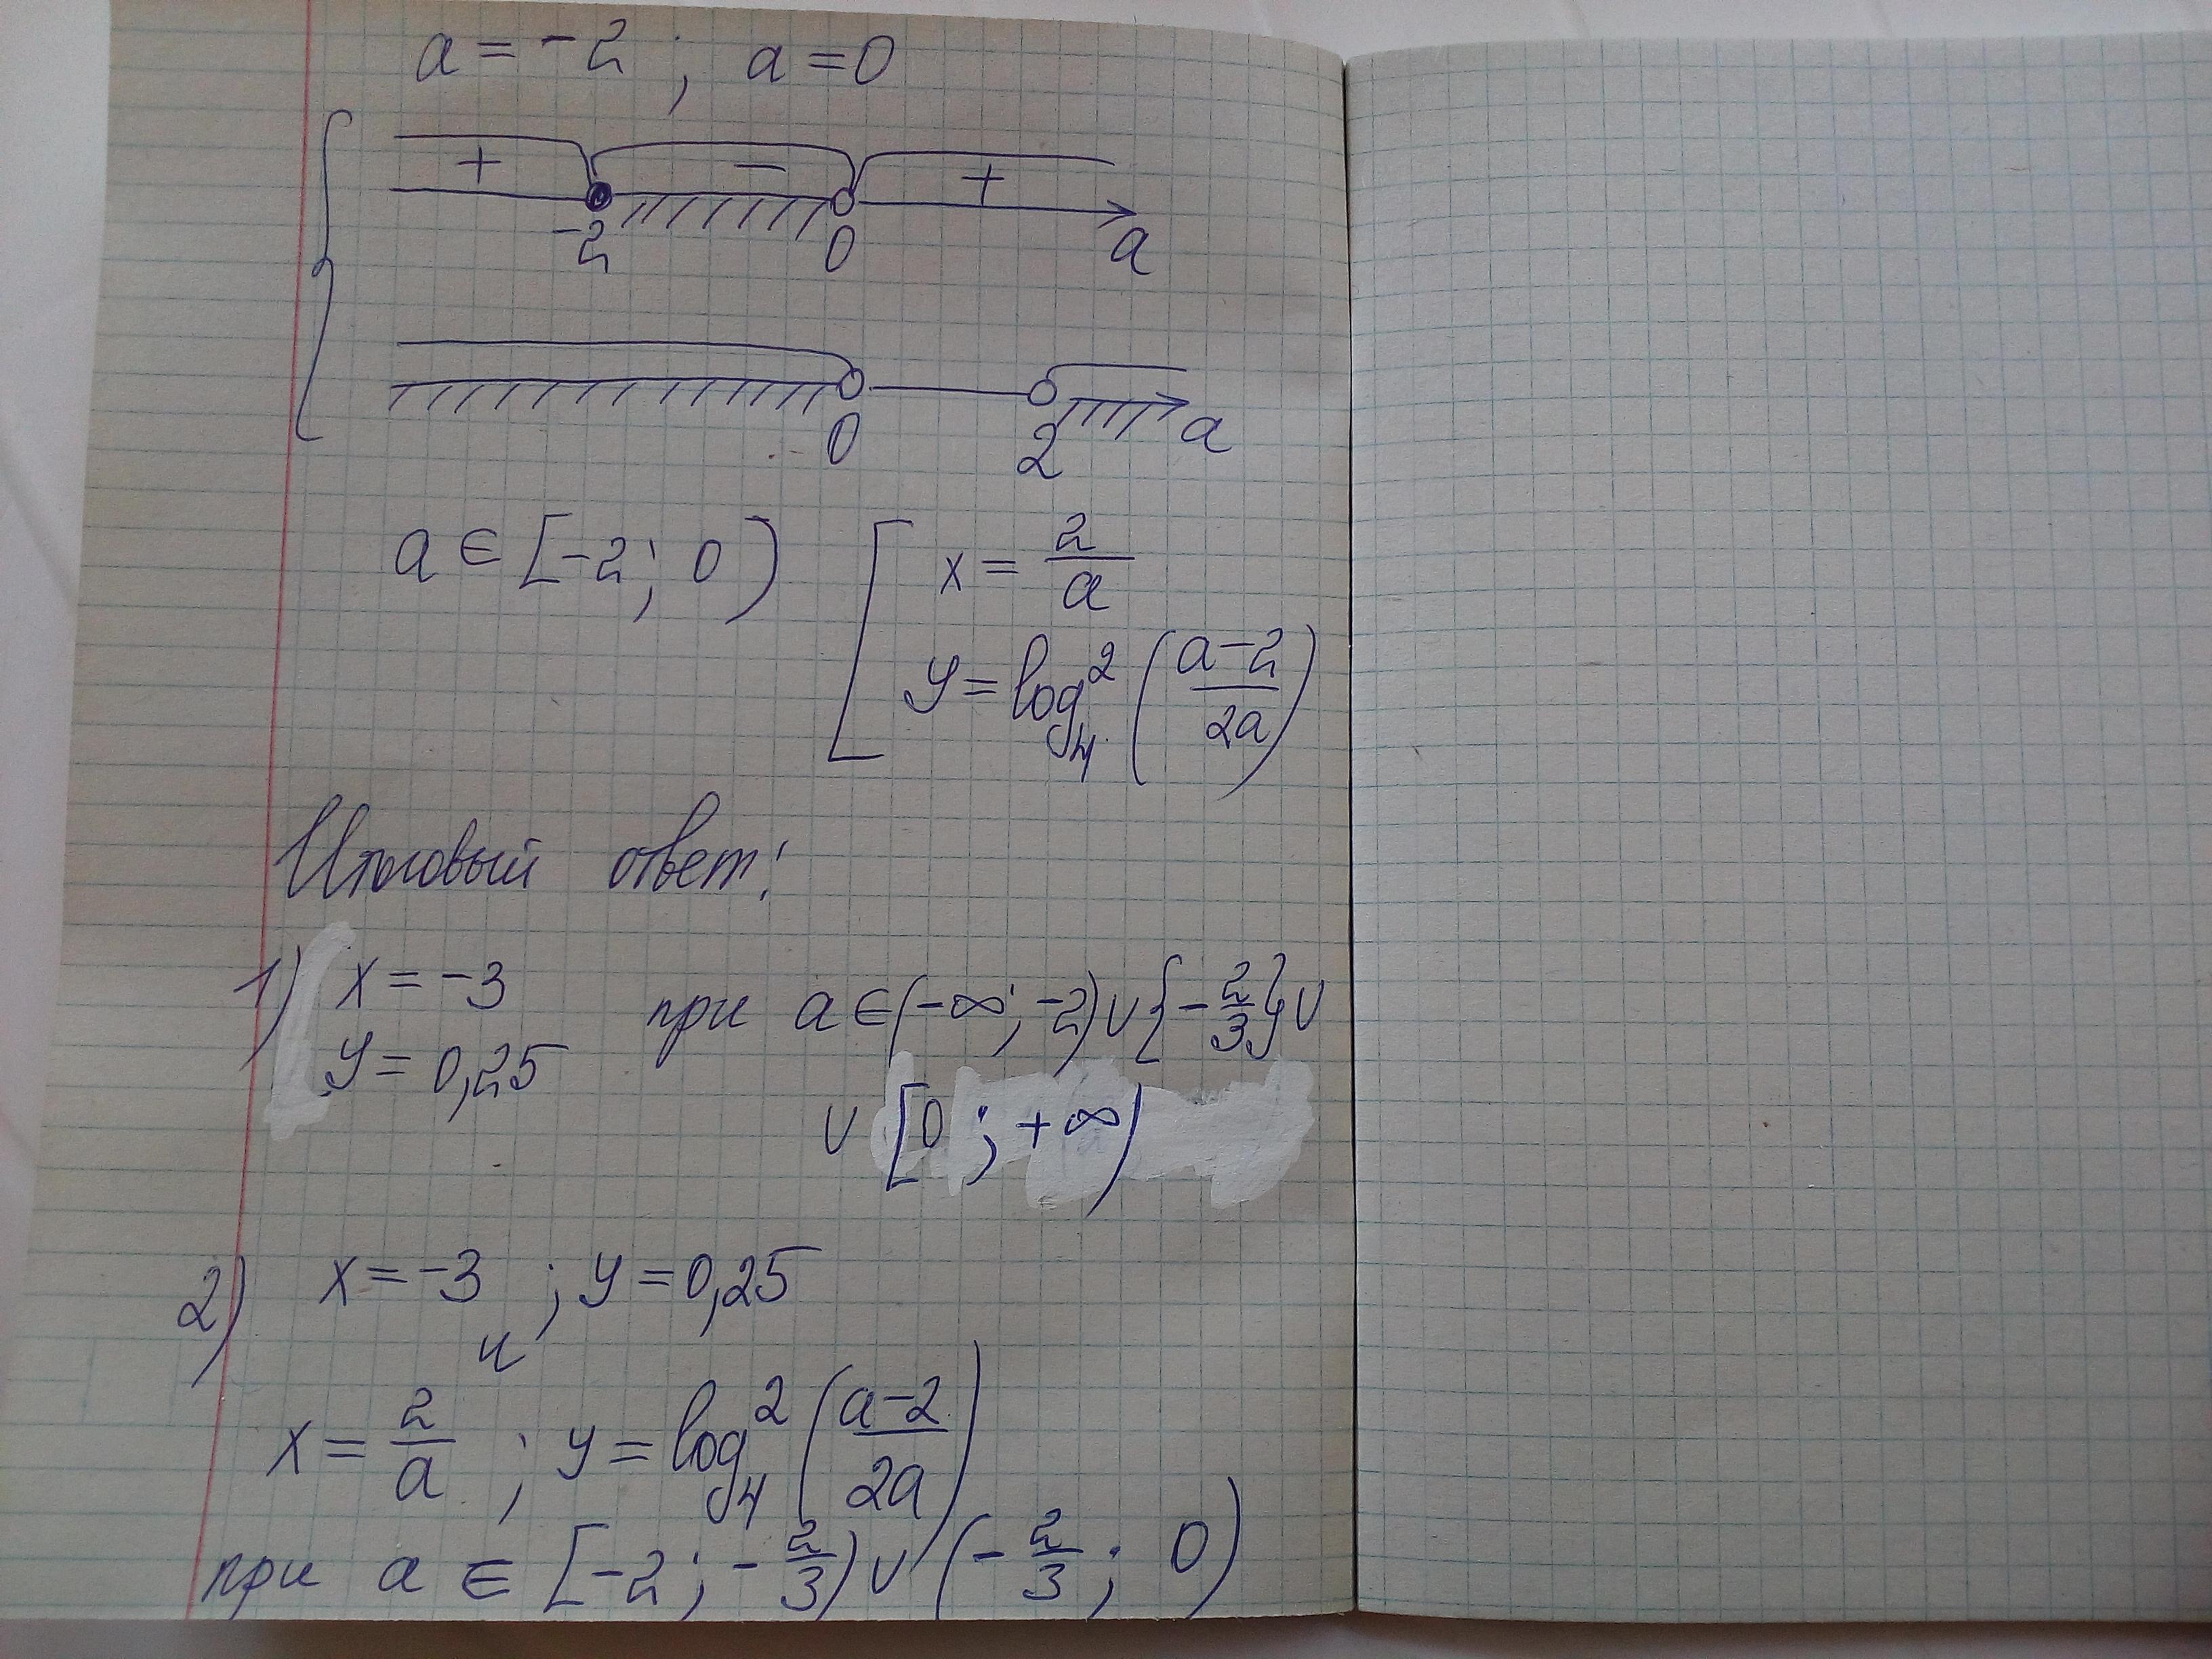 a = -2 ; a = 0
+ - +
-2 0 a
0 2 a
a ∈ [-2; 0) [ x = 2/a
y = log₄² ((a-2)/2a)
Итоговый ответ:
1) x = -3
y = 0,25 при a ∈ (-∞; -2) ∪ {-2/3} ∪
∪ [0 ; +∞)
2) x = -3 ; y = 0,25
и
x = 2/a ; y = log₄² ((a-2)/2a)
при a ∈ [-2; -2/3) ∪ (-2/3; 0)